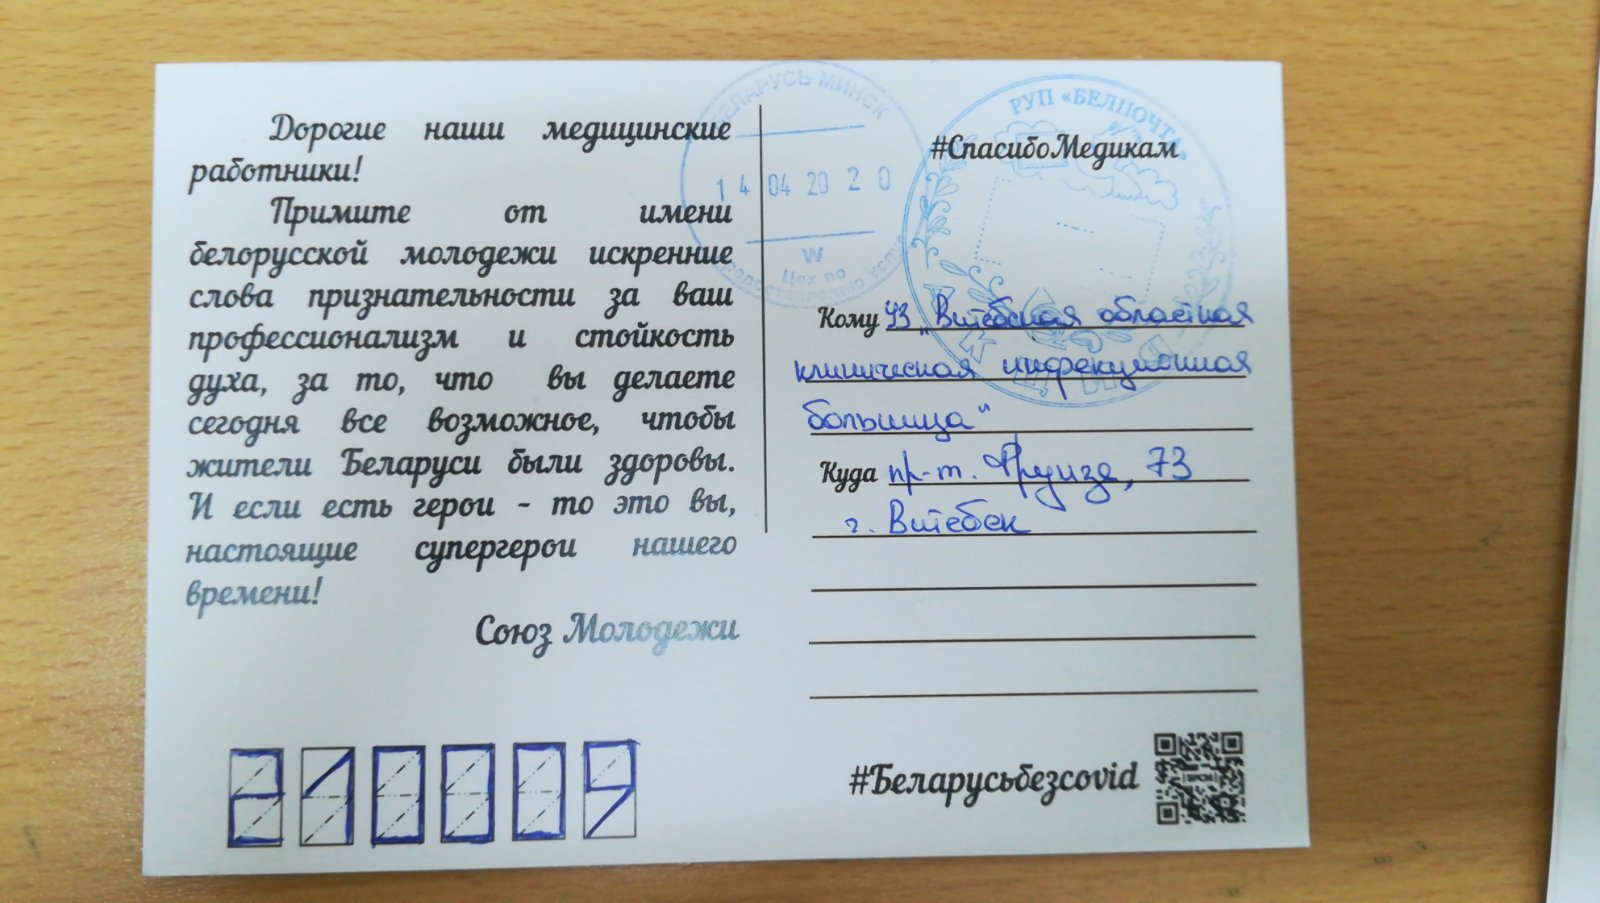 Дорогие наши медицинские
работники!
Примите от имени
белорусской молодежи искренние
слова признательности за ваш
профессионализм и стойкость
духа, за то, что вы делаете
сегодня все возможное, чтобы
жители Беларуси были здоровы.
И если есть герои - то это вы,
настоящие супергерои нашего
времени!
Союз Молодежи
БЕЛАРУСЬ МИНСК
14 04 20 20
W
Цех по
РУП «БЕЛПОЧТА»
#СпасибоМедикам
Кому УЗ „Витебская областная
клиническая инфекционная
больница"
Куда пр-т. Фрунзе, 73
г. Витебск
210009
#Беларусьбезcovid